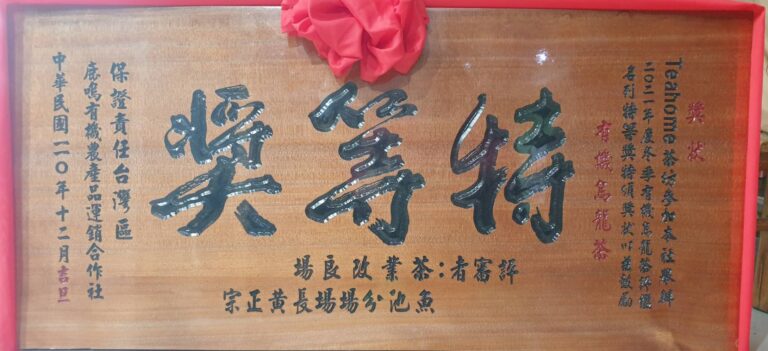 獎狀
Teahome茶坊參加本社舉辦
二〇二一年度冬季有機烏龍茶評鑑
名列特等獎特頒獎狀以茲鼓勵
有機烏龍茶
特等獎
評審者:茶業改良場
魚池分場場長黃正宗
保證責任台灣區
鹿鳴有機農產品運銷合作社
中華民國一一0年十二月吉旦